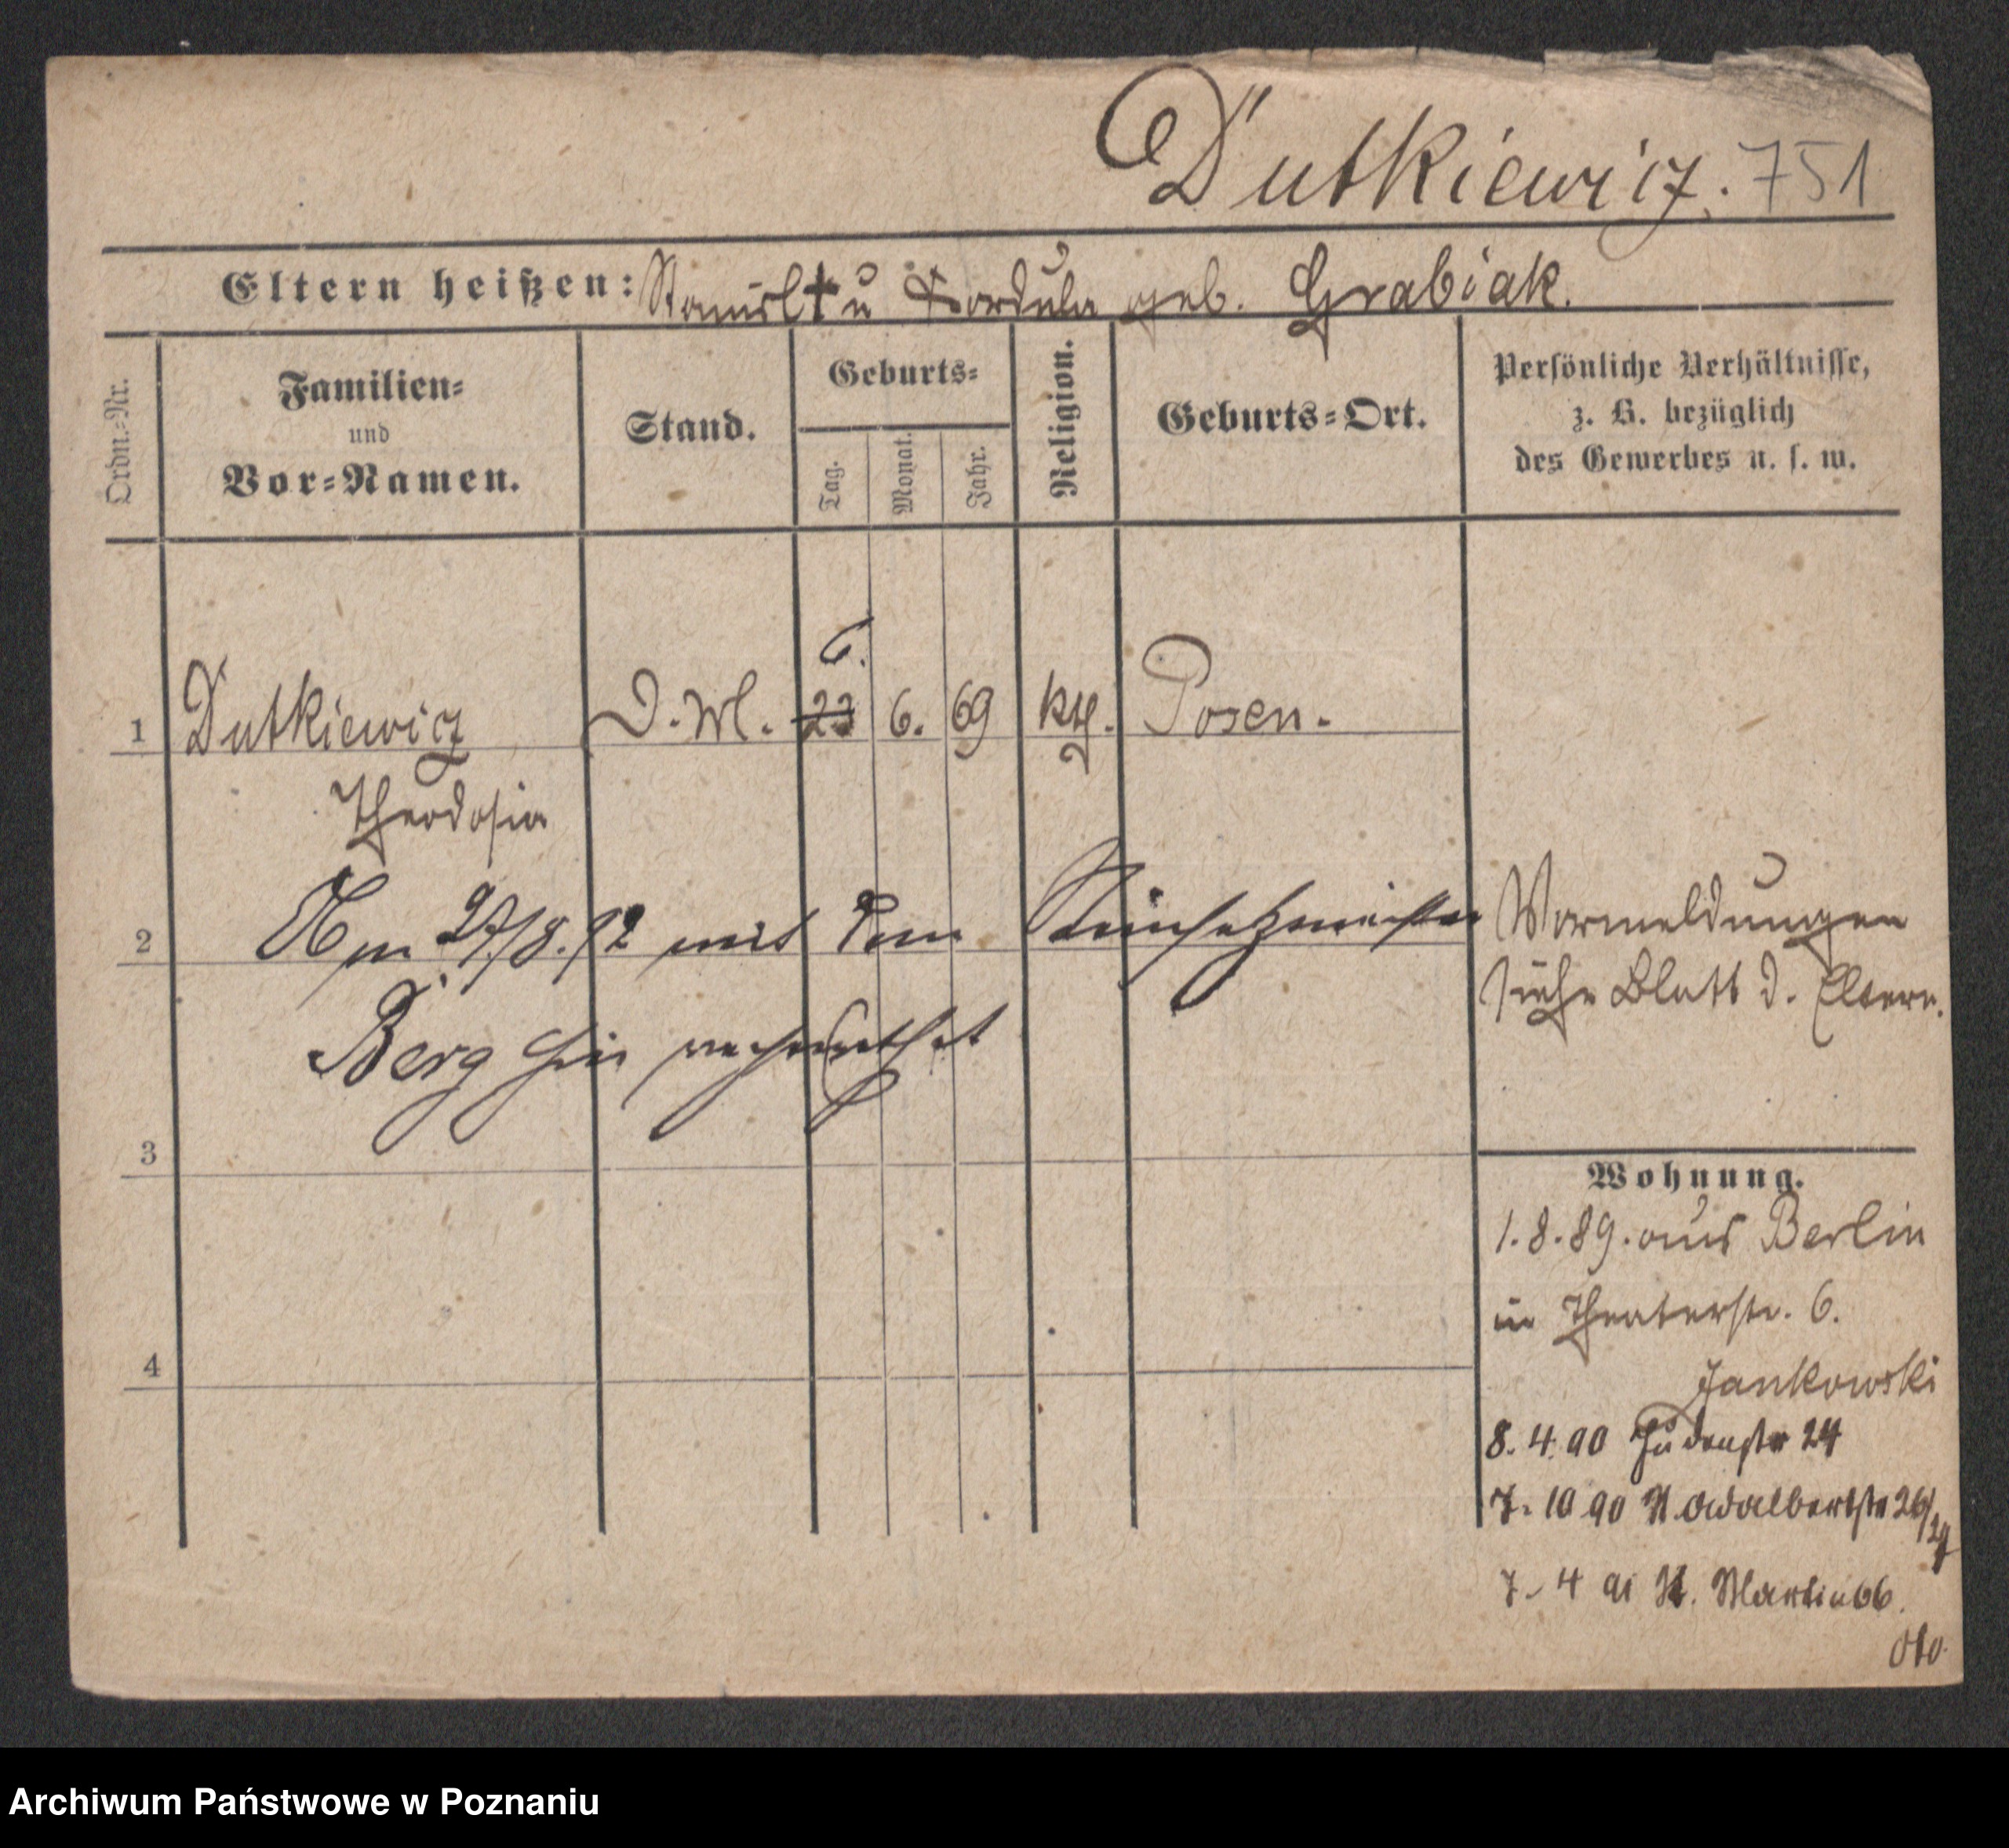 Dutkiewicz. 751
Eltern heißen: Stanisl † u Kordula geb. Grabiak.
Ordn.-Nr.
Familien-
und
Vor-Namen.
Stand.
Geburts-
Tag.
Monat.
Jahr.
Religion.
Geburts-Ort.
Persönliche Verhältnisse,
z. B. bezüglich
des Gewerbes u. s. w.
6.
1 Dutkiewicz D. Wl. 23 6. 69 kth. Posen.
Theodosia
2 Am 27/8. 92 mit dem Steinsetzmeister
Berg hier verheirathet
Vormeldungen
siehe Blatt d. Eltern.
3
4
Wohnung.
1. 8. 89. aus Berlin
in Theaterstr. 6.
Jankowski
8. 4. 90 Judenstr 24
7. 10 90 St. Adalbertstr 26/27
7. 4 91 St. Martin 66.